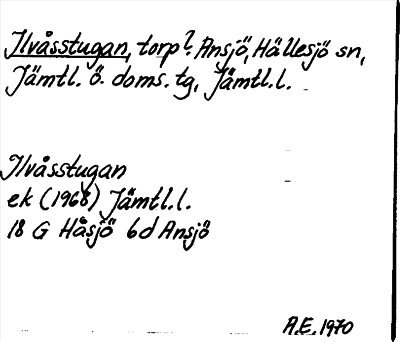 Ilvåsstugan, torp?. Ansjö, Hällesjö sn,
Jämtl. ö. doms. tg, Jämtl.l.
Ilvåsstugan
ek (1968) Jämtl.l.
18 G Håsjö 6d Ansjö
A.E. 1970